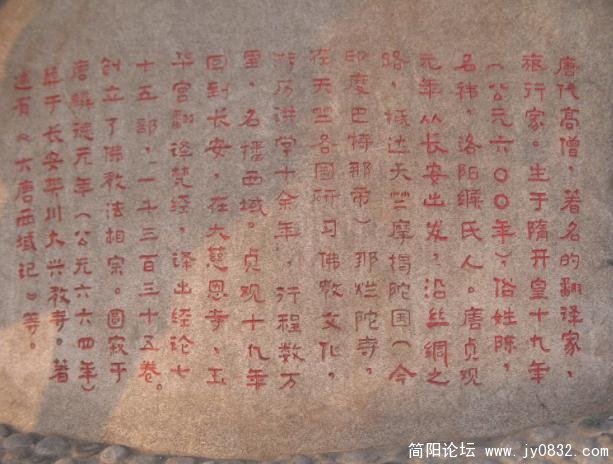 唐代高僧，著名的翻译家，
旅行家。生于隋开皇十九年
（公元六〇〇年）俗姓陈，
名袆，洛阳缑氏人。唐贞观
元年从长安出发，沿丝绸之
路，抵达天竺摩揭陀国（今
印度巴特那市）那烂陀寺，
在天竺各国研习佛教文化，
游历讲学十余年，行程数万
里，名播西域。贞观十九年
回到长安，在大慈恩寺，玉
华宫翻译梵经，译出经论七
十五部，一千三百三十五卷。
创立了佛教法相宗。圆寂于
唐麟德元年（公元六六四年）
葬于长安樊川大兴教寺。著
述有《大唐西域记》等。
简阳论坛 www.jy0832.com